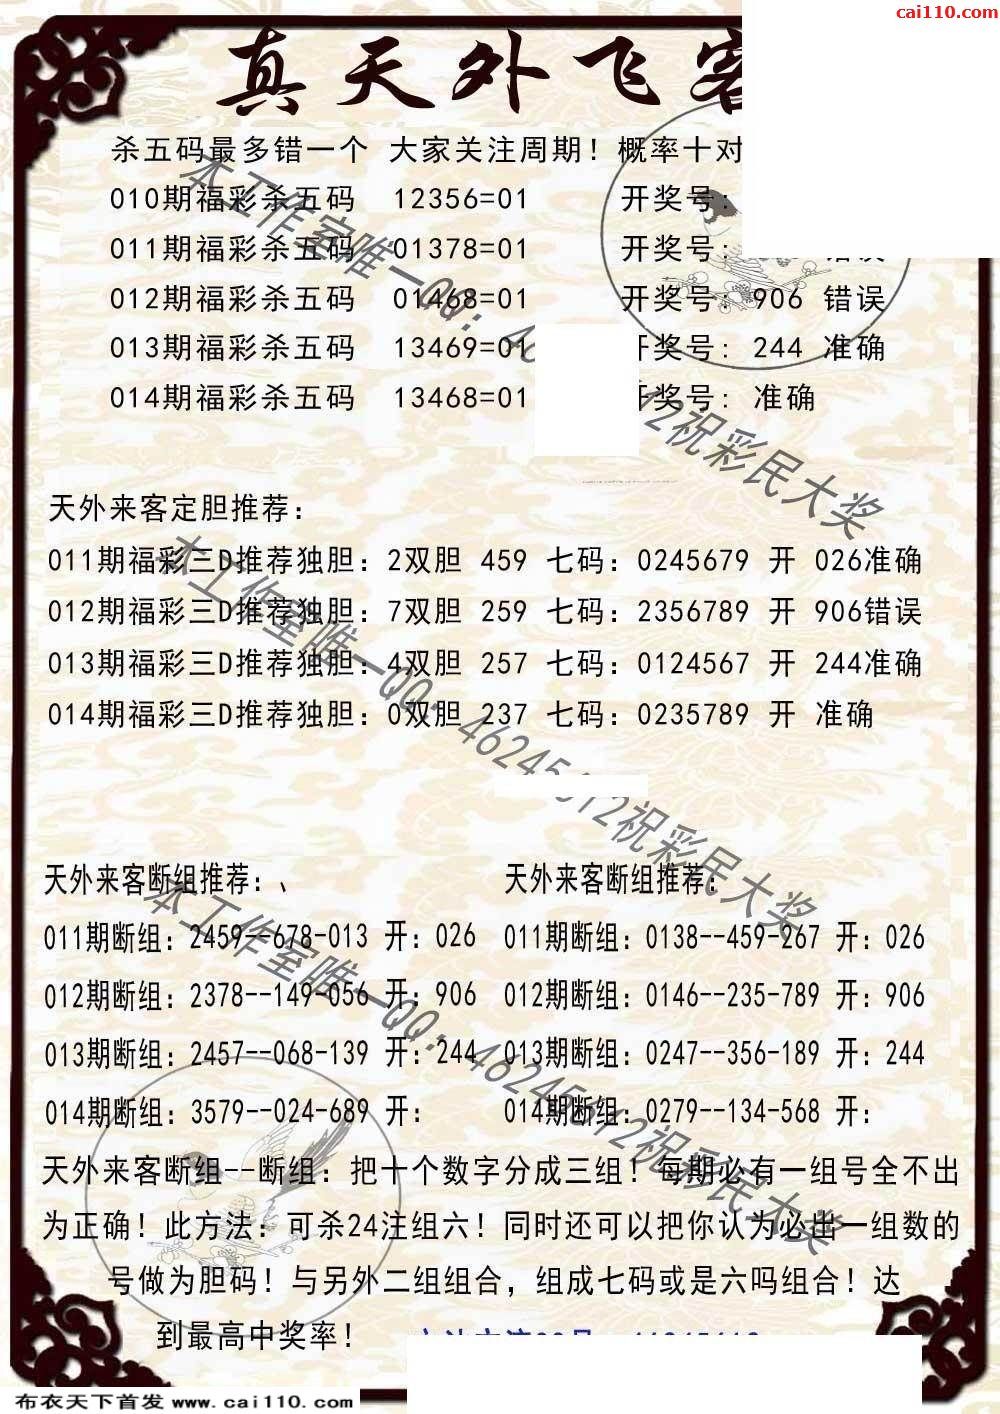 cai110.com
真天外飞客
杀五码最多错一个 大家关注周期！概率十对
010期福彩杀五码 12356=01 开奖号:
011期福彩杀五码 01378=01 开奖号: 错误
012期福彩杀五码 01468=01 开奖号: 906 错误
013期福彩杀五码 13469=01 开奖号: 244 准确
014期福彩杀五码 13468=01 开奖号: 准确
天外来客定胆推荐:
011期福彩三D推荐独胆: 2双胆 459 七码: 0245679 开 026准确
012期福彩三D推荐独胆: 7双胆 259 七码: 2356789 开 906错误
013期福彩三D推荐独胆: 4双胆 257 七码: 0124567 开 244准确
014期福彩三D推荐独胆: 0双胆 237 七码: 0235789 开 准确
天外来客断组推荐:、 天外来客断组推荐:
011期断组: 2459--678-013 开: 026 011期断组: 0138--459-267 开: 026
012期断组: 2378--149-056 开: 906 012期断组: 0146--235-789 开: 906
013期断组: 2457--068-139 开: 244 013期断组: 0247--356-189 开: 244
014期断组: 3579--024-689 开: 014期断组: 0279--134-568 开:
天外来客断组--断组: 把十个数字分成三组！每期必有一组号全不出
为正确！此方法: 可杀24注组六！同时还可以把你认为必出一组数的
号做为胆码！与另外二组组合，组成七码或是六吗组合！达
到最高中奖率！
本工作室唯一QQ: 46245612祝彩民大奖
本工作室唯一QQ: 46245612祝彩民大奖
布衣天下首发 www.cai110.com